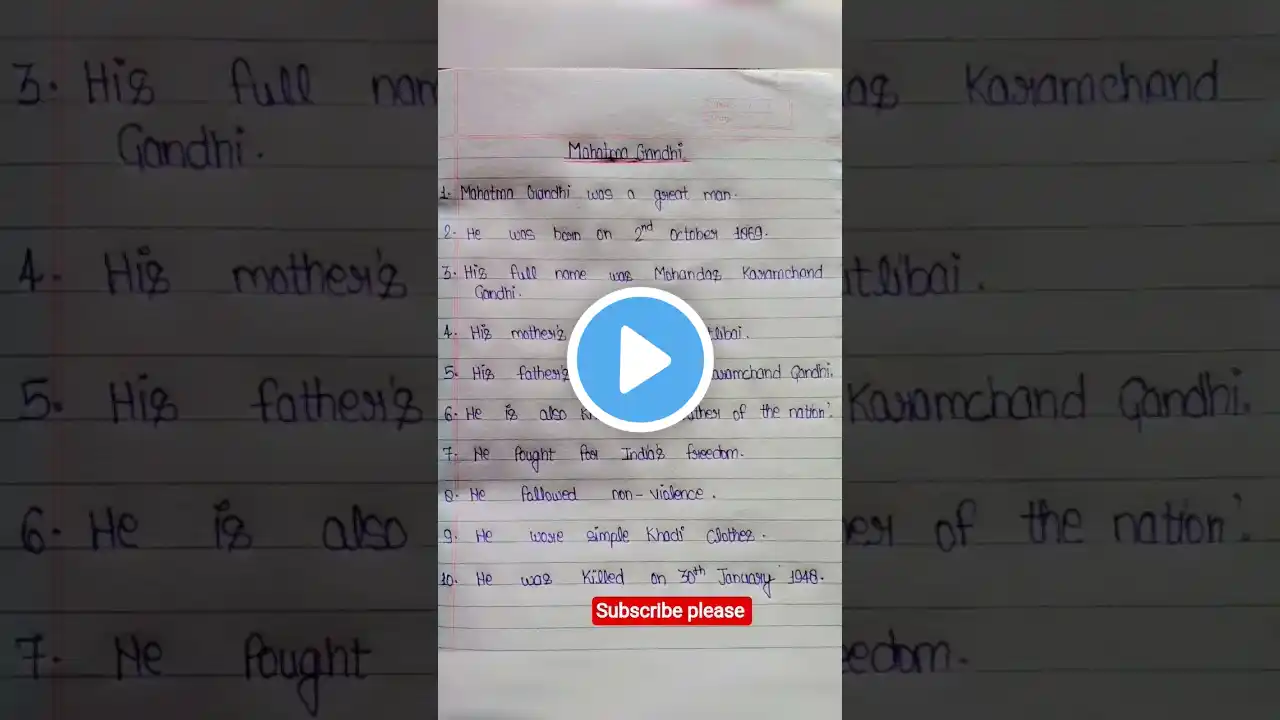 3. His full
Gandhi.
4. His mother's
5. His father's
6. He is also
7. He fought
Mahatma Gandhi
1. Mahatma Gandhi was a great man.
2. He was born on 2nd October 1869.
3. His full name was Mohandas Karamchand
Gandhi.
4. His mother's
5. His father's Gandhi.
6. He is also of the nation'.
7. He fought for India's freedom.
8. He followed non-violence.
9. He wore simple Khadi clothes.
10. He was killed on 30th January 1948.
Subscribe please
Karamchand
Karamchand Gandhi.
of the nation'.